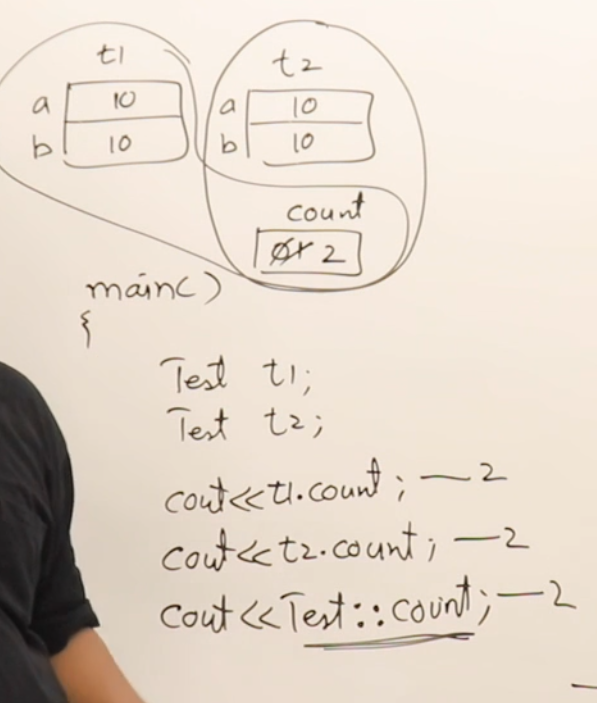 t1 t2
a 10 a 10
b 10 b 10
count
0 1 2
main()
{
Test t1;
Test t2;
cout<<t1.count; — 2
cout<<t2.count; — 2
cout<<Test::count; — 2